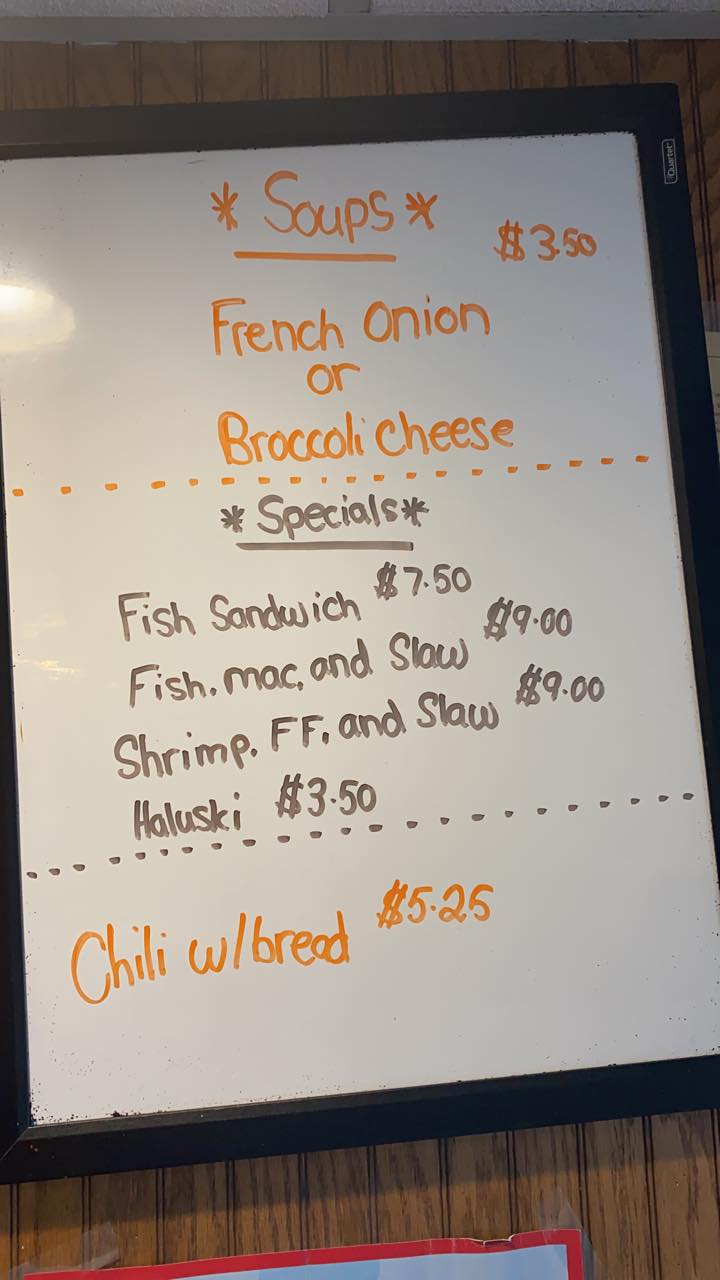 Quartet
* Soups * $3.50
French Onion
or
Broccoli cheese
* Specials *
Fish Sandwich $7.50
Fish, mac, and Slaw $9.00
Shrimp, FF, and Slaw $9.00
Haluski $3.50
Chili w/bread $5.25